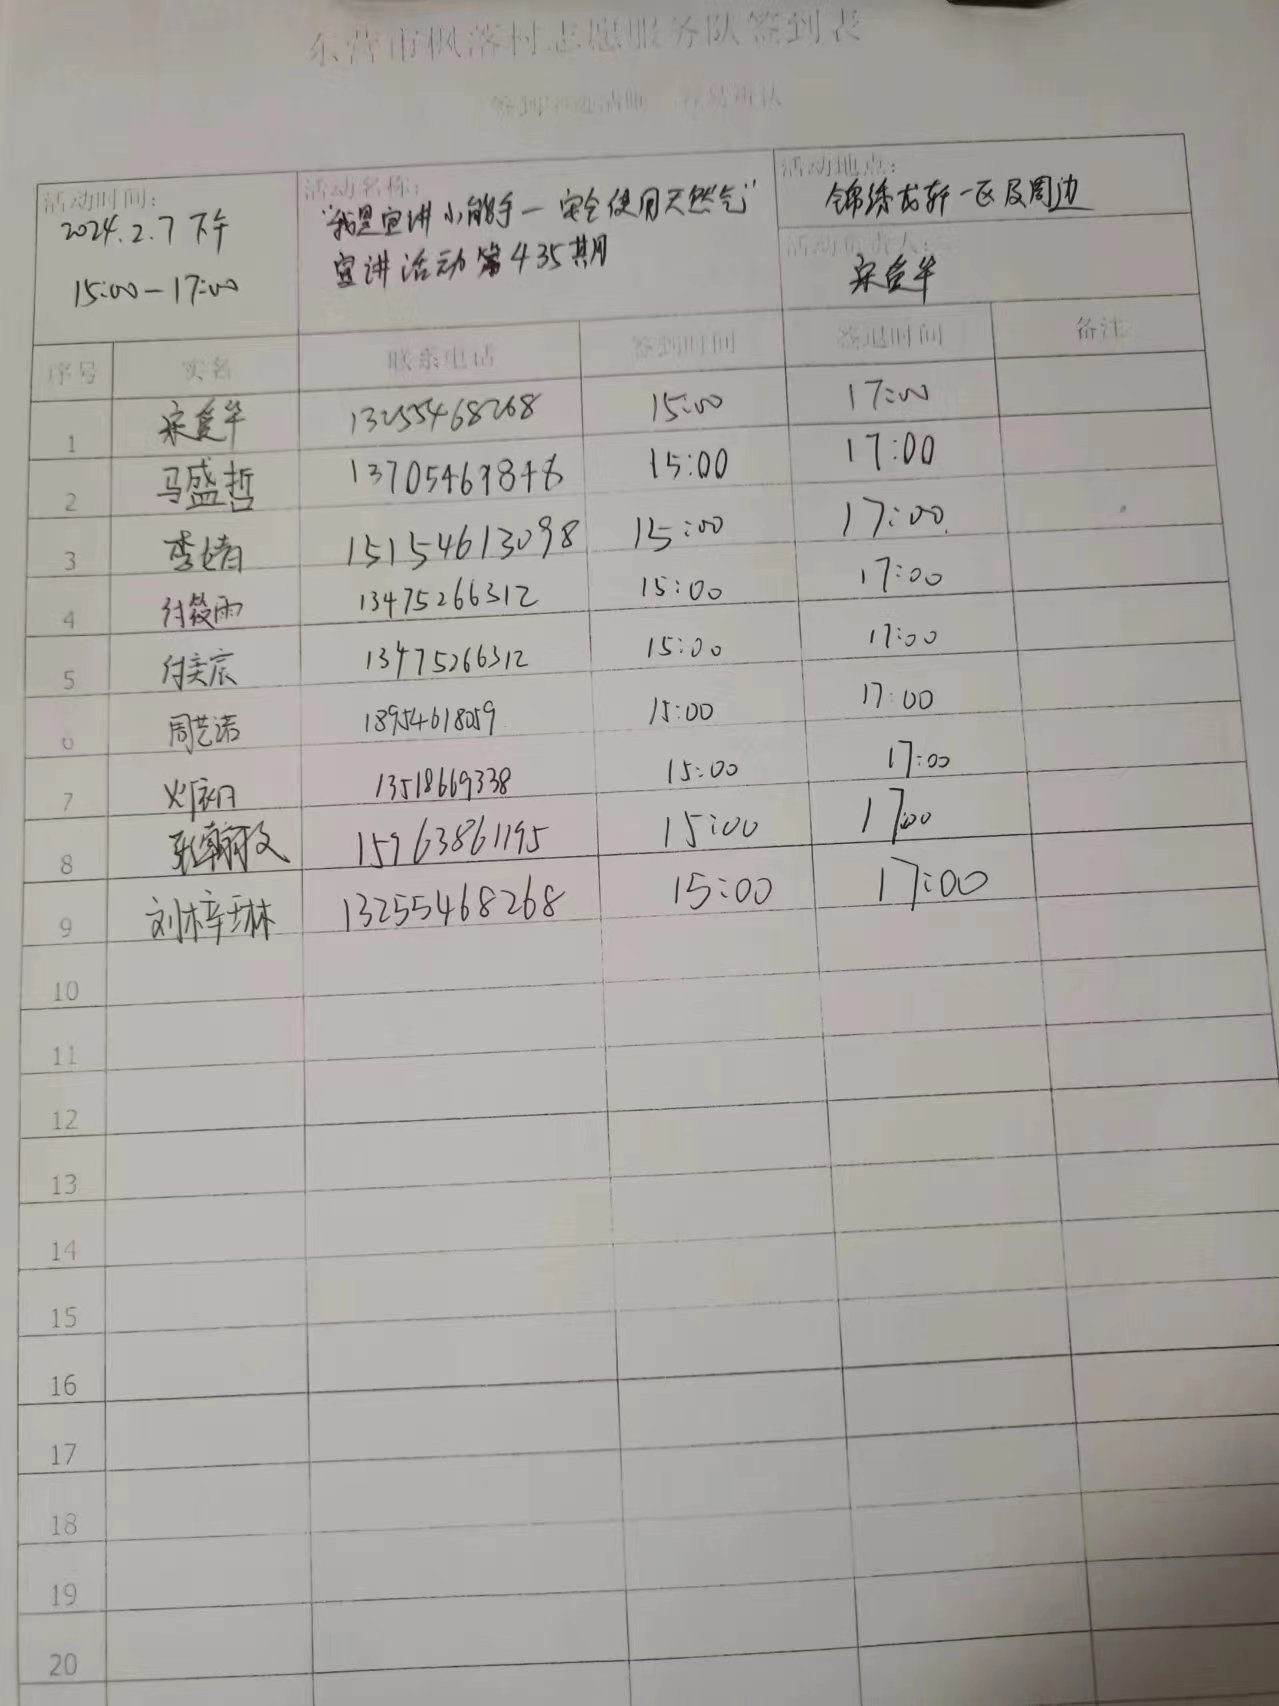 东营市枫落村志愿服务队签到表
活动时间：
2024.2.7 下午
15:00-17:00
活动名称：
"我是宣讲小能手-安全使用天然气"
宣讲活动第435期
活动地点：
锦绣龙轩一区及周边
活动负责人：
宋爱华
序号 实名 联系电话 签到时间 签退时间 备注
1 宋爱华 13255468268 15:00 17:00
2 马盛哲 13705469848 15:00 17:00
3 李靖 15154613098 15:00 17:00
4 付筱雨 13475266312 15:00 17:00
5 付奕辰 13475266312 15:00 17:00
6 周艺涛 18954618059 15:00 17:00
7 13518669338 15:00 17:00
8 张瀚文 15963861195 15:00 17:00
9 刘梓琳 13255468268 15:00 17:00
10
11
12
13
14
15
16
17
18
19
20